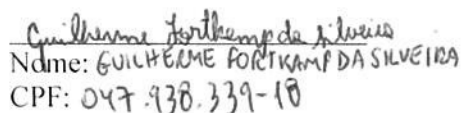 Guilherme Fortkamp da Silveira
Name: GUILHERME FORTKAMP DA SILVEIRA
CPF: 047.938.339-18